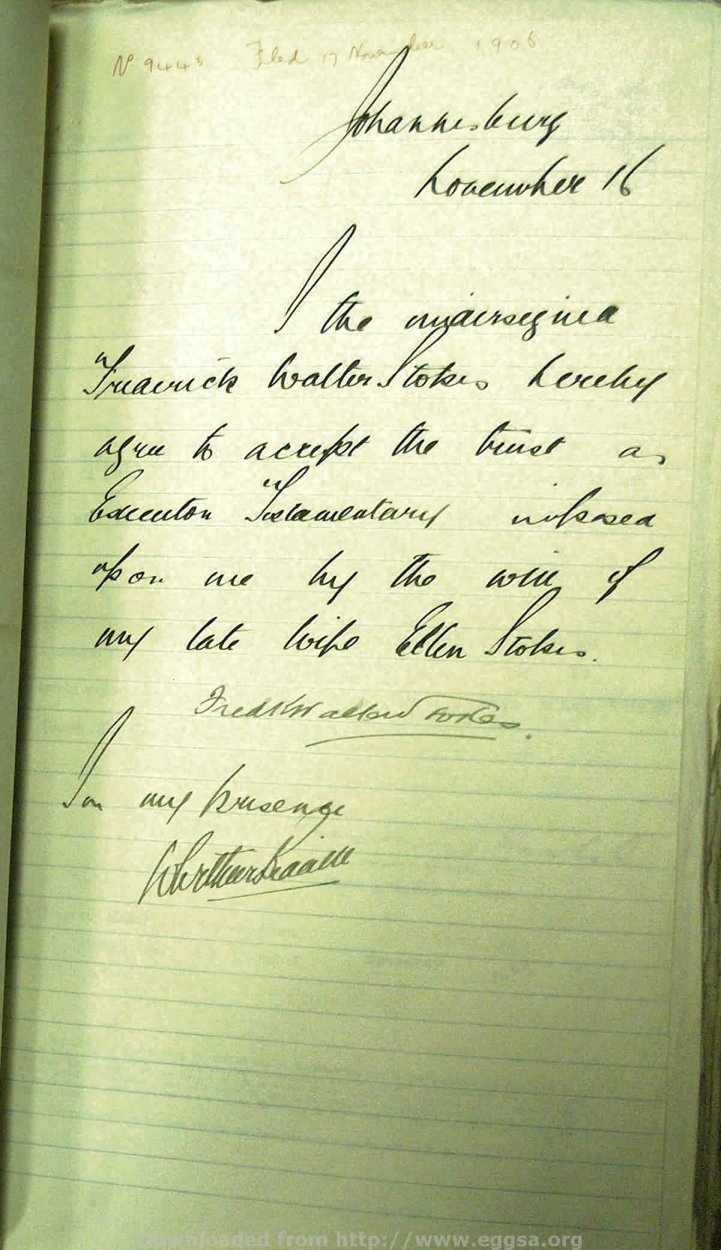 No 9443 Filed 17 November 1906
Johannesburg
November 16
I the undersigned
Frederick Walter Stokes hereby
agree to accept the trust as
Executor Testamentary imposed
upon me by the will of
my late wife Ellen Stokes.
Fredk Walter Stokes.
In my presence
Downloaded from http://www.eggsa.org